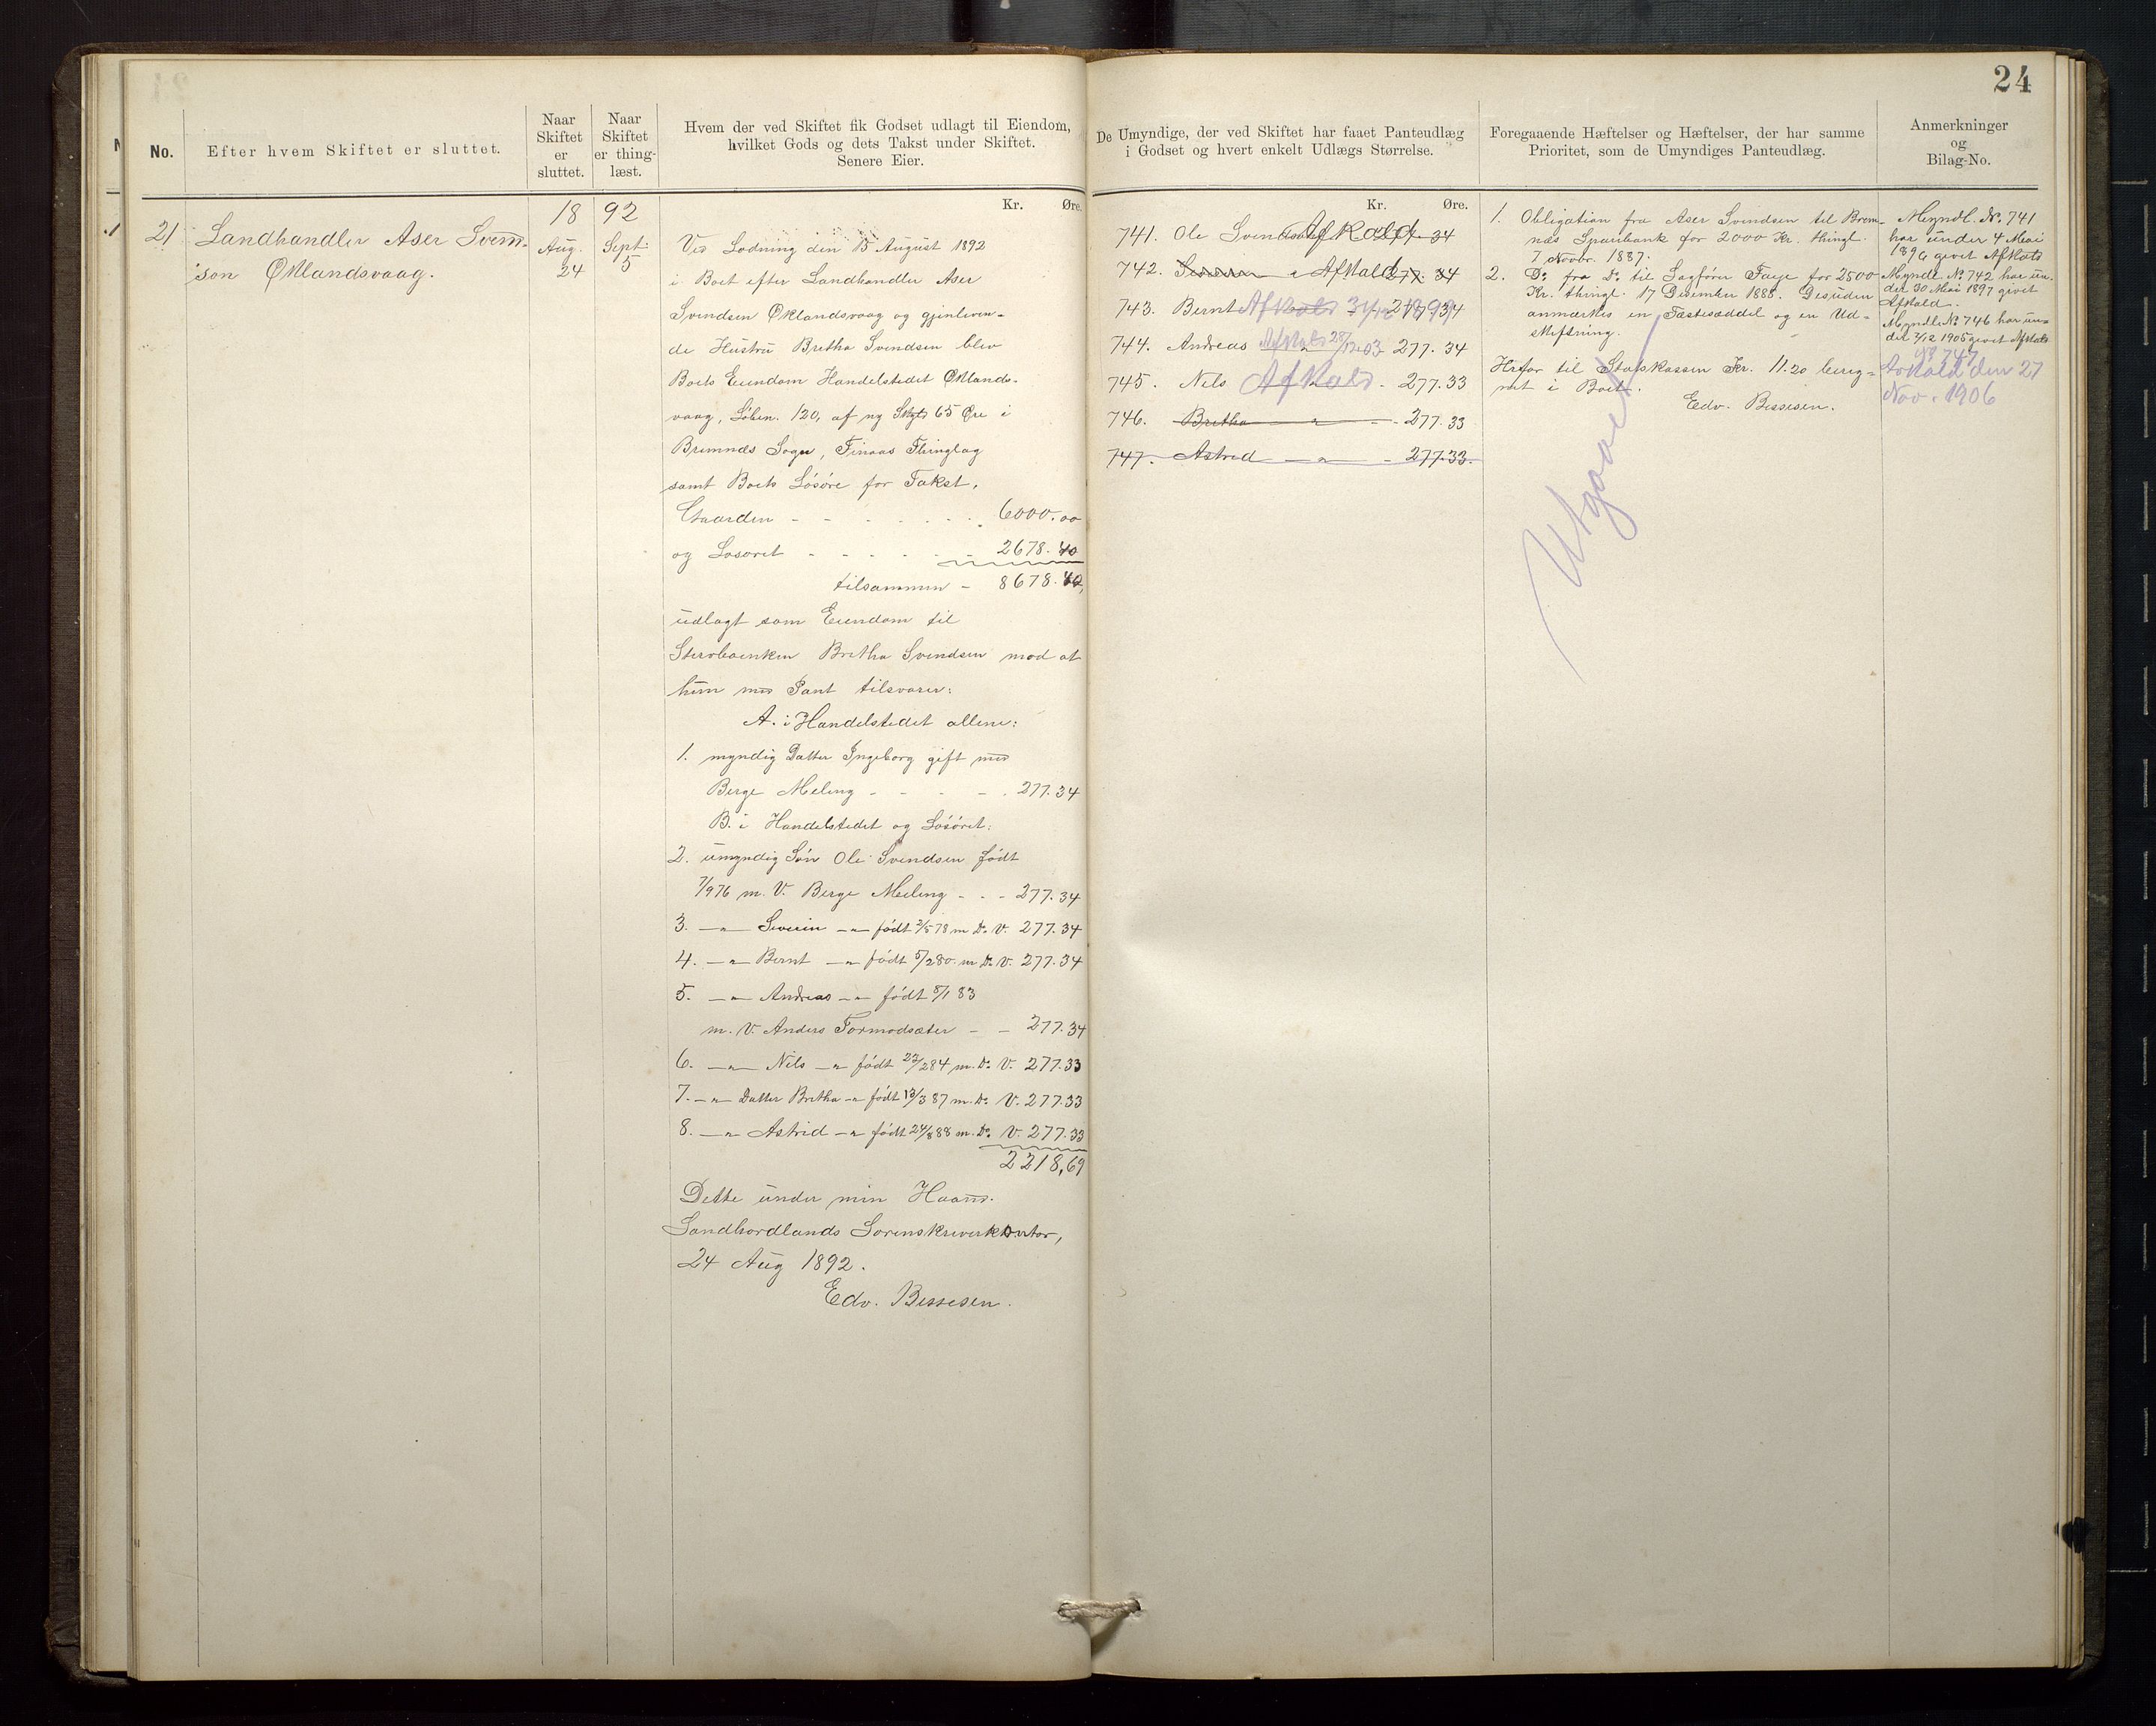 24
No.
Efter hvem Skiftet er sluttet.
Naar
Skiftet
er
sluttet.
Naar
Skiftet
er thing-
læst.
Hvem der ved Skiftet fik Godset udlagt til Eiendom,
hvilket Gods og dets Takst under Skiftet.
Senere Eier.
De Umyndige, der ved Skiftet har faaet Panteudlæg
i Godset og hvert enkelt Udlægs Størrelse.
Foregaaende Hæftelser og Hæftelser, der har samme
Prioritet, som de Umyndiges Panteudlæg.
Anmerkninger
og
Bilag-No.
21
Landhandler Aser Svend-
son Øklandsvaag.
18 92
Aug. Sept:
24 5
Kr. Øre.
Ved Lodning den 15 August 1892
i Boet efter Landhandler Aser
Svendsen Øklandsvaag og gjenleven-
de Hustru Bretha Svendsen blev
Boets Eiendom Handelstedet Øklands-
vaag, Løben. 120, af ny Skyld 65 Øre i
Bremnæs Sogn, Finaas Thinglag
samt Boets Løsøre for Takst,
Gaarden - - - - - 6000.00
og Løsøret - - - - - 2678.40
tilsammen - 8678.40,
udlagt som Eiendom til
Stervboenken Bretha Svendsen mod at
hun med Pant tilsvarer:
A. i Handelstedet allene:
1. myndig Datter Ingeborg gift med
Berge Meling - - - - 277.34
B. i Handelstedet og Løsøret:
2. umyndig Søn Ole Svendsen født
7/976 m. V. Berge Meling - - - 277.34
3. -"- Severin -"- født 2/578 m Do. V. 277.34
4. -"- Bernt -"- født 5/280. m. Do. V. 277.34
5. -"- Andreas -"- født 8/1 83
m. V. Anders Tormodsæter - - 277.34
6. -"- Nils -"- født 22/284 m. Do. V. 277.33
7. -"- Datter Bretha -"- født 13/387 m. Do. V. 277.33
8. -"- Astrid -"- født 24/888 m. Do. V. 277.33
2218,69
Dette under min Haand.
Søndhordlands Sorenskriverkontor,
24 Aug 1892.
Edv. Bessesen.
Kr. Øre.
741. Ole Svendsen Afkald 277.34
742. Severin " Afkald 277.34
743. Bernt Afkald 277.34
744. Andreas Afkald 28/12 03 277.34
745. Nils Afkald - 277.33
746. Bretha " - 277.33
747. Astrid -"- - 277.33.
1. Obligation fra Aser Svendsen til Brem-
næs Sparebank for 2000 Kr. thingl.
7 Novbr. 1887.
2. Do. fra Do. til Sagfører Faye for 2500
Kr. thingl. 17 Desember 1888. Desuden
anmærkes en Fæstesæddel og en Ud-
skiftning.
Herfor til Statskassen Kr. 11.20 bereg-
net i Boet.
Edv. Bessesen.
Utgaaet
Myndl. No. 741
har under 4 Mai
1896 givet Afkald
Myndl. No 742 har un-
der 30 Mai 1897 givet
Afkald.
Myndl No 746 har un-
der 2/12 1905 givet Afkald
No 747
Afkald den 27
Nov. 1906